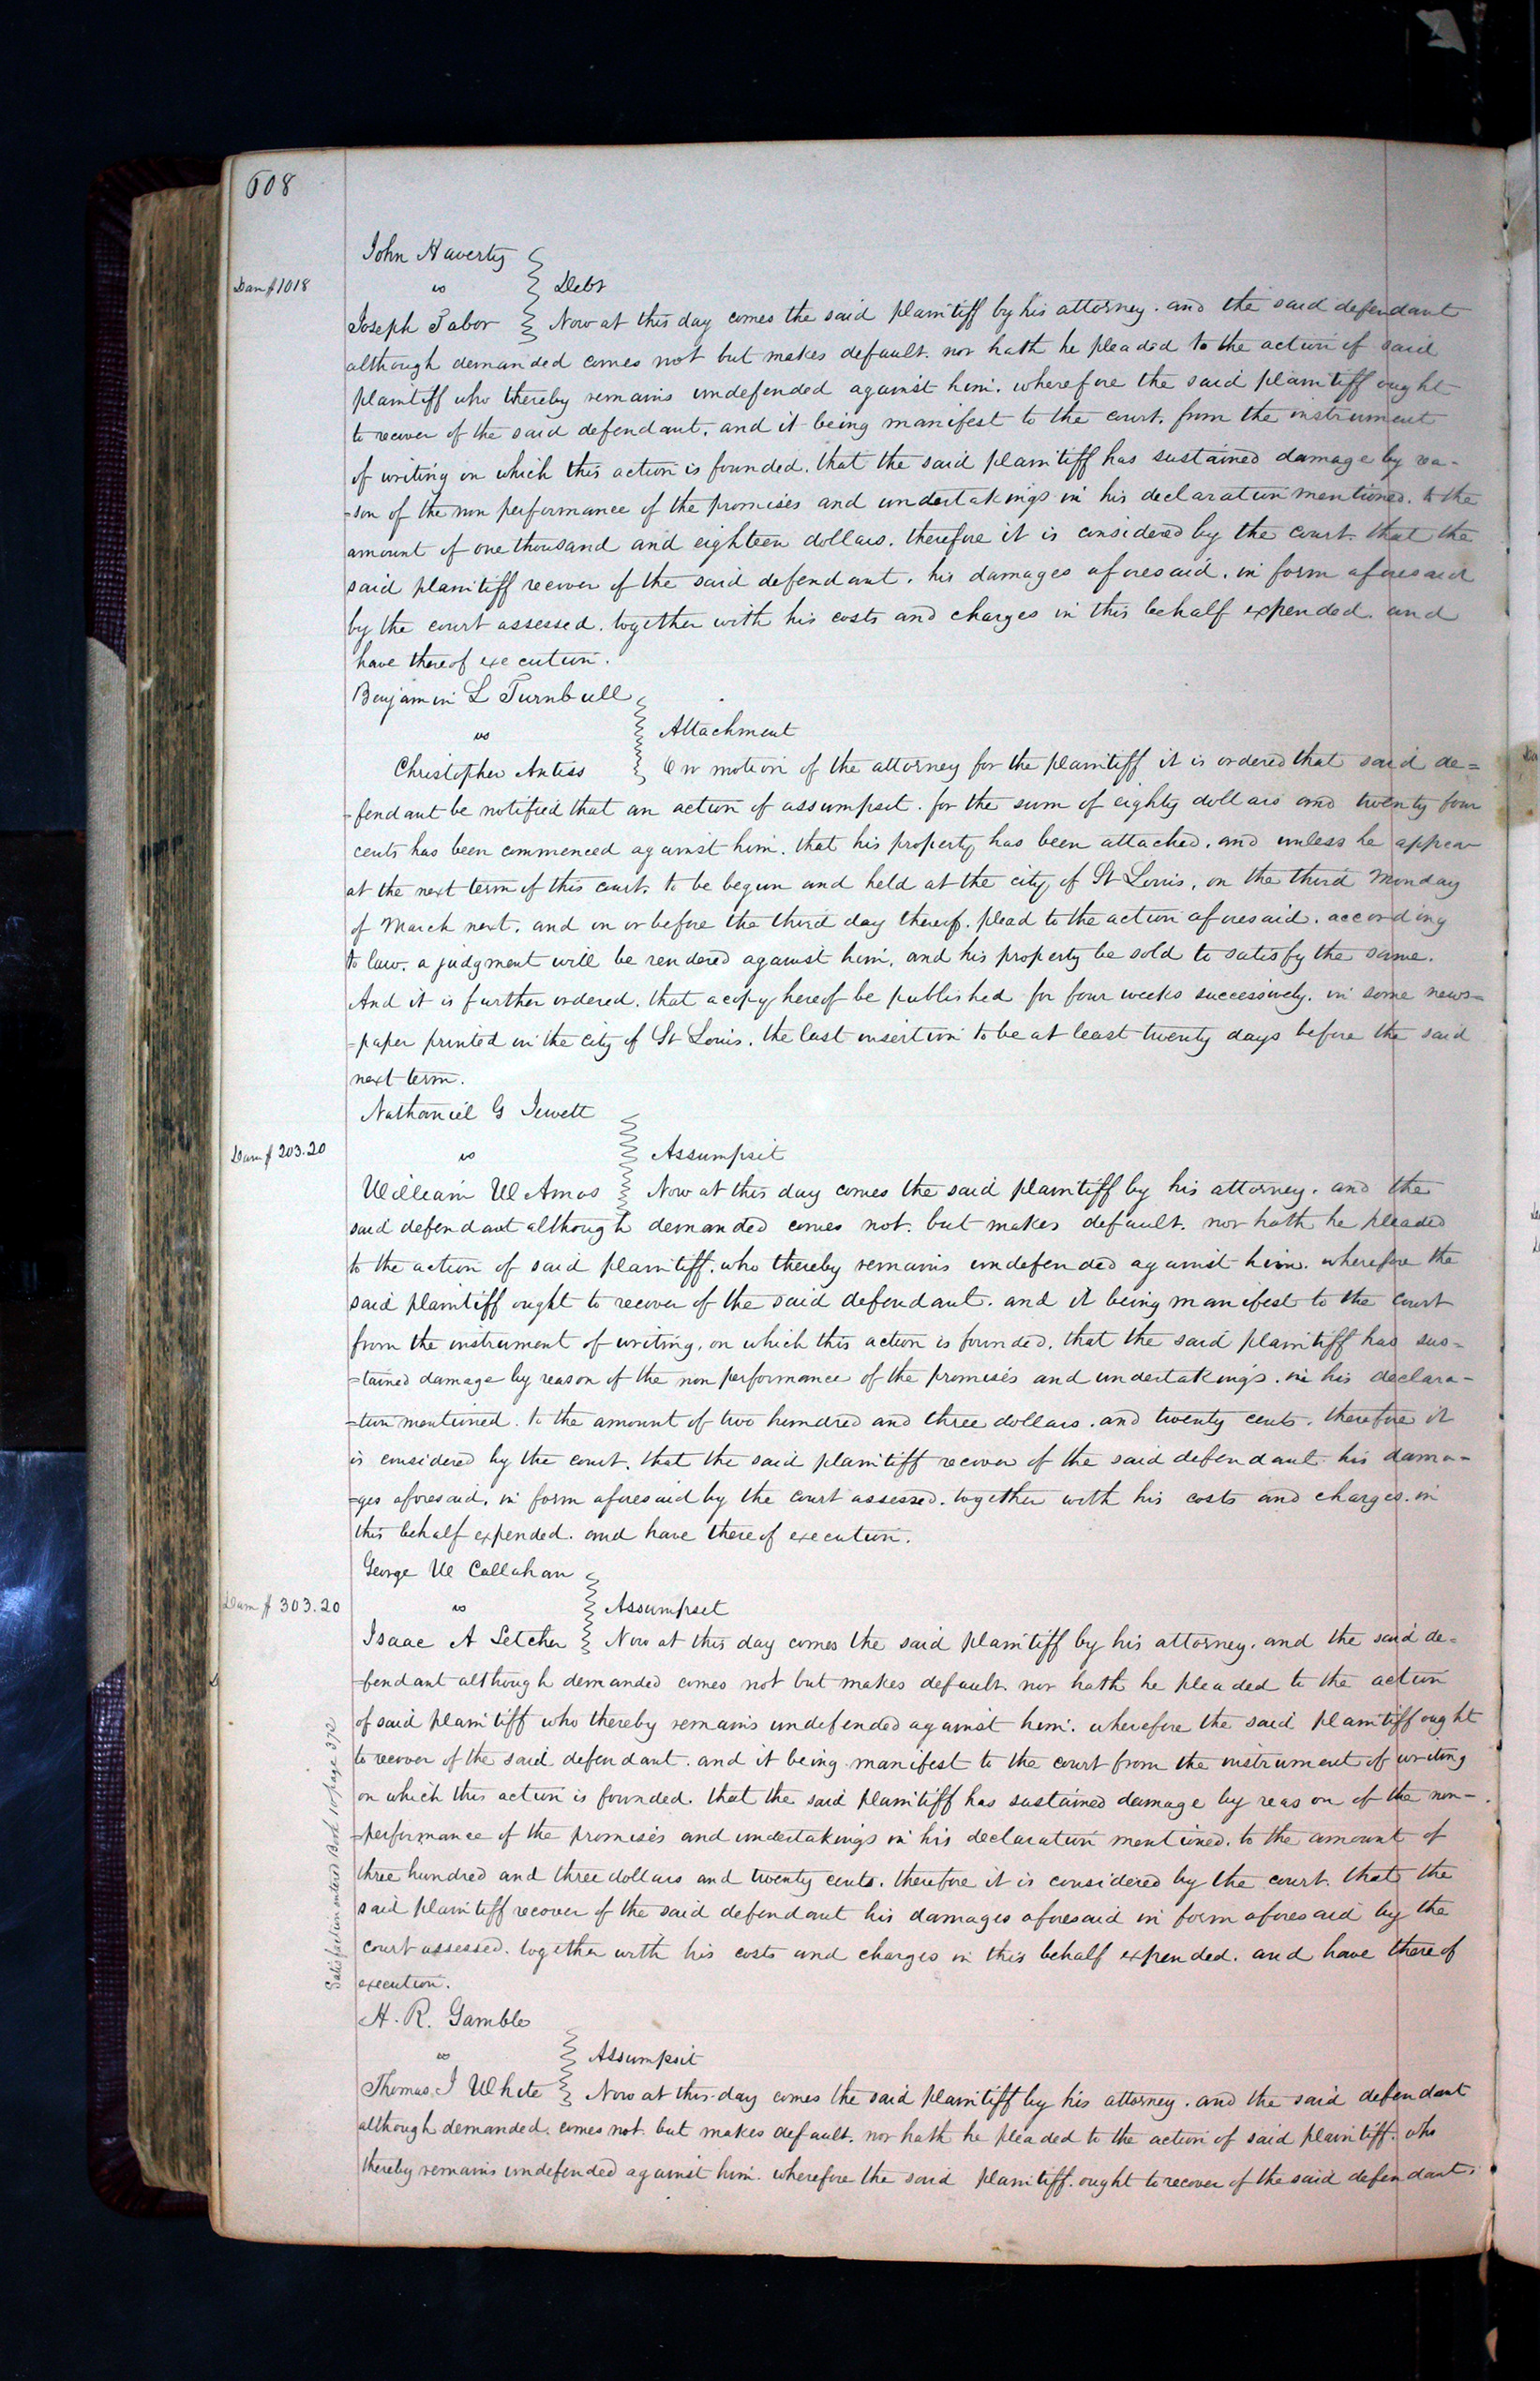 608
John Haverty
Dam $1018
vs
Debt
Joseph Tabor
Now at this day comes the said plaintiff by his attorney. and the said defendant
although demanded comes not but makes default. nor hath he pleaded to the action of said
plaintiff who thereby remains undefended against him. wherefore the said plaintiff ought
to recover of the said defendant. and it being manifest to the court. from the instrument
of writing on which this action is founded. that the said plaintiff has sustained damage by rea-
-son of the non performance of the promises and undertakings in his declaration mentioned. to the
amount of one thousand and eighteen dollars. therefore it is considered by the court. that the
said plaintiff recover of the said defendant. his damages aforesaid. in form aforesaid
by the court assessed. together with his costs and charges in this behalf expended. and
have thereof execution.
Benjamin L Turnbull
vs
Attachment
Christopher Antess
On motion of the attorney for the plaintiff it is ordered that said de=
-fendant be notified that an action of assumpsit. for the sum of eighty dollars and twenty four
cents has been commenced against him. that his property has been attached. and unless he appear
at the next term of this court. to be begun and held at the city of St Louis, on the third Monday
of March next. and on or before the third day thereof. plead to the action aforesaid. according
to law. a judgment will be rendered against him. and his property be sold to satisfy the same.
And it is further ordered. that a copy hereof be published for four weeks successively. in some news=
=paper printed in the city of St Louis. the last insertion to be at least twenty days before the said
next term.
Nathaniel G Jewett
Dam $203.20
vs
Assumpsit
William W Amos
Now at this day comes the said plaintiff by his attorney. and the
said defendant although demanded comes not. but makes default. nor hath he pleaded
to the action of said plaintiff. who thereby remains undefended against him. wherefore the
said plaintiff ought to recover of the said defendant. and it being manifest to the court
from the instrument of writing. on which this action is founded. that the said plaintiff has sus=
=tained damage by reason of the non performance of the promises and undertakings. in his declara-
-tion mentioned. to the amount of two hundred and three dollars. and twenty cents. therefore it
is considered by the court. that the said plaintiff recover of the said defendant his dama-
-ges aforesaid. in form aforesaid by the court assessed. together with his costs and charges. in
this behalf expended. and have thereof execution.
George W Callahan
Dam $ 303.20
vs
Assumpsit
Isaac A Letcher
Now at this day comes the said plaintiff by his attorney. and the said de=
-fendant although demanded comes not but makes default. nor hath he pleaded to the action
of said plaintiff who thereby remains undefended against him. wherefore the said plaintiff ought
to recover of the said defendant. and it being manifest to the court from the instrument of writing
on which this action is founded. that the said plaintiff has sustained damage by reason of the non-
-performance of the promises and undertakings in his declaration mentioned. to the amount of
three hundred and three dollars and twenty cents. therefore it is considered by the court. that the
said plaintiff recover of the said defendant his damages aforesaid in form aforesaid by the
court assessed. together with his costs and charges in this behalf expended. and have thereof
execution.
Satisfaction entered Book 10 page 372
H. R. Gamble
vs
Assumpsit
Thomas J White
Now at this day comes the said plaintiff by his attorney. and the said defendant
although demanded. comes not. but makes default. nor hath he pleaded to the action of said plaintiff. who
thereby remains undefended against him. wherefore the said plaintiff. ought to recover of the said defendant.